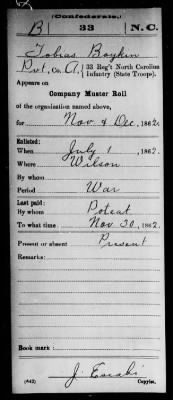 (Confederate.)
B 33 N.C.
Tobias Boykin
Pvt., Co. A, 33 Reg't North Carolina
Infantry (State Troops).
Appears on
Company Muster Roll
of the organization named above,
for Nov & Dec, 1862.
Enlisted:
When July 1, 1862.
Where Wilson
By whom
Period War
Last paid:
By whom Poteat
To what time Nov 30, 1862.
Present or absent Present
Remarks:
Book mark:
(642)
J.
Copyist.